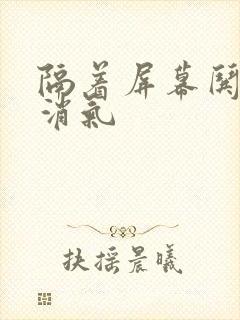 隔着屏幕
消氣
扶搖晨曦